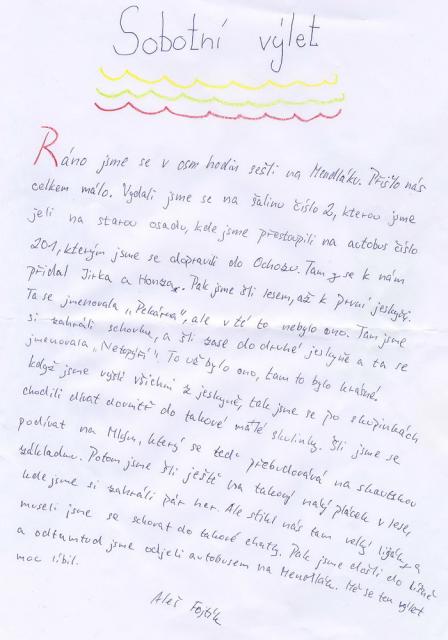 Sobotní výlet
Ráno jsme se v osm hodin sešli na Mendláku. Přišlo nás
celkem málo. Vydali jsme se na šalinu číslo 2, kterou jsme
jeli na starou osadu, kde jsme přestoupili na autobus číslo
201, kterým jsme se dopravili do Ochozu. Tam se k nám
přidal Jirka a Honza. Pak jsme šli lesem, až k první jeskyni.
Ta se jmenovala „Pekárna", ale v té to nebylo ono. Tam jsme
si zahráli schovku, a šli zase do druhé jeskyně a ta se
jmenovala „Netopýří". To už bylo ono, tam to bylo krásné.
když jsme vyšli všichni z jeskyně, tak jsme se po skupinkách
chodili dívat dovnitř do takové malé skulinky. Šli jsme se
podívat na Mlýn, který se teda přebudovává na skautskou
základnu. Potom jsme šli ještě na takový malý plácek v lese,
kde jsme si zahráli pár her. Ale stihl nás tam velký liják a
museli jsme se schovat do takové chatky. Pak jsme došli do Líšně
a odtamtud jsme odjeli autobusem na Mendlák. Mě se ten výlet
moc líbil.
Aleš Fojtík